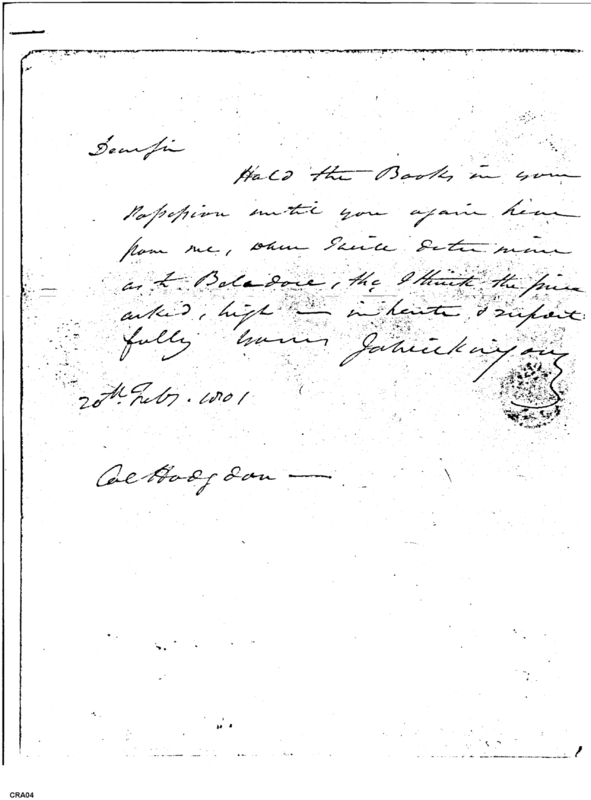 Dear Sir
Hold the Books in your
possession until you again hear
from me, when I will determine
as to Belidore, tho I think the price
asked, high — in haste, & respect
fully yours Ja Wilkinson
20th Feby. 1801
Col Hodgdon —
CRA04